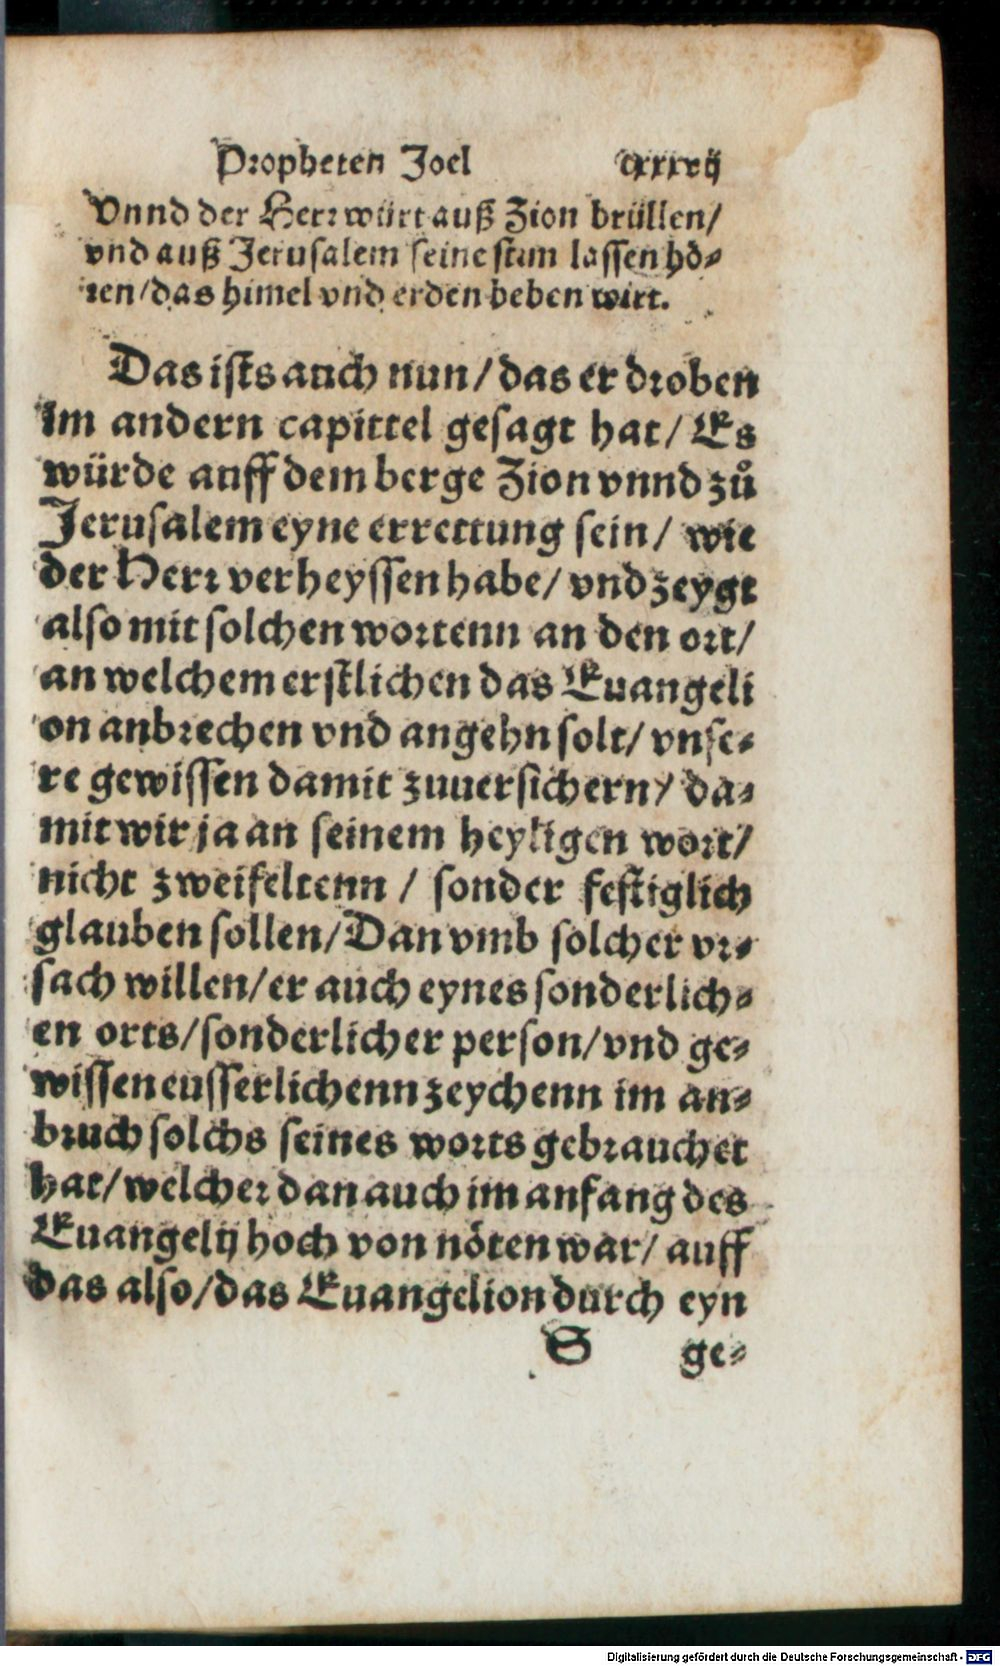 Propheten Joel cxxxvij
Vnnd der Herr würt auß Zion brüllen/
vnd auß Jerusalem seine stim lassen hö-
ren/das himel vnd erden beben wirt.
Das ists auch nun/das er droben
im andern capittel gesagt hat/Es
würde auff dem berge Zion vnnd zů
Jerusalem eyne errettung sein/ wie
der Herr verheyssen habe/ vnd zeygt
also mit solchen wortenn an den ort/
an welchem erstlichen das Euangeli
on anbrechen vnd angehn solt/ vnse-
re gewissen damit zuuersichern/ da-
mit wir ja an seinem heyligen wort/
nicht zweifeltenn / sonder festiglich
glauben sollen/Dan vmb solcher vr-
sach willen/er auch eynes sonderlich-
en orts/sonderlicher person/vnd ge-
wissen eusserlichenn zeychenn im an-
bruch solchs seines worts gebrauchet
hat/welcher dan auch im anfang des
Euangelij hoch von nöten war/ auff
das also/das Euangelion durch eyn
S ge-
Digitalisierung gefördert durch die Deutsche Forschungsgemeinschaft - DFG